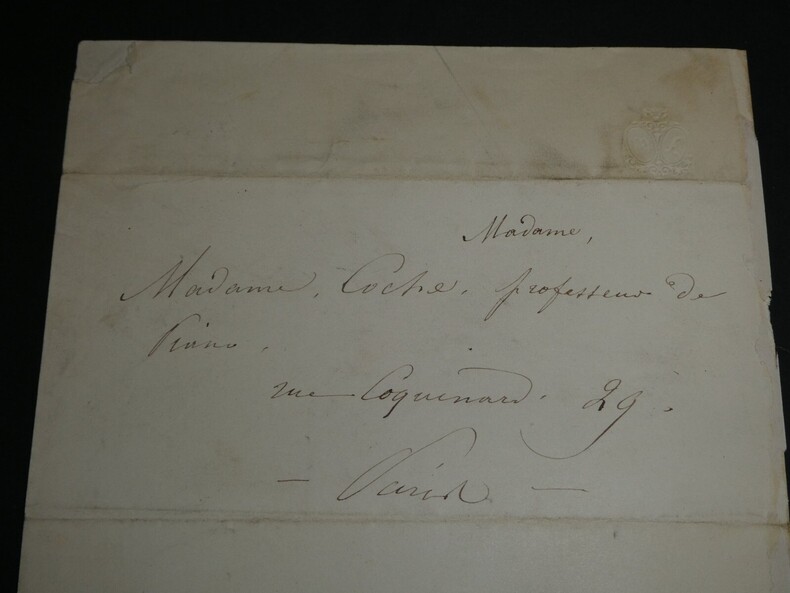 Madame,
Madame, Coche, professeur de
Piano,
rue Coquenard, 29,
— Paris —